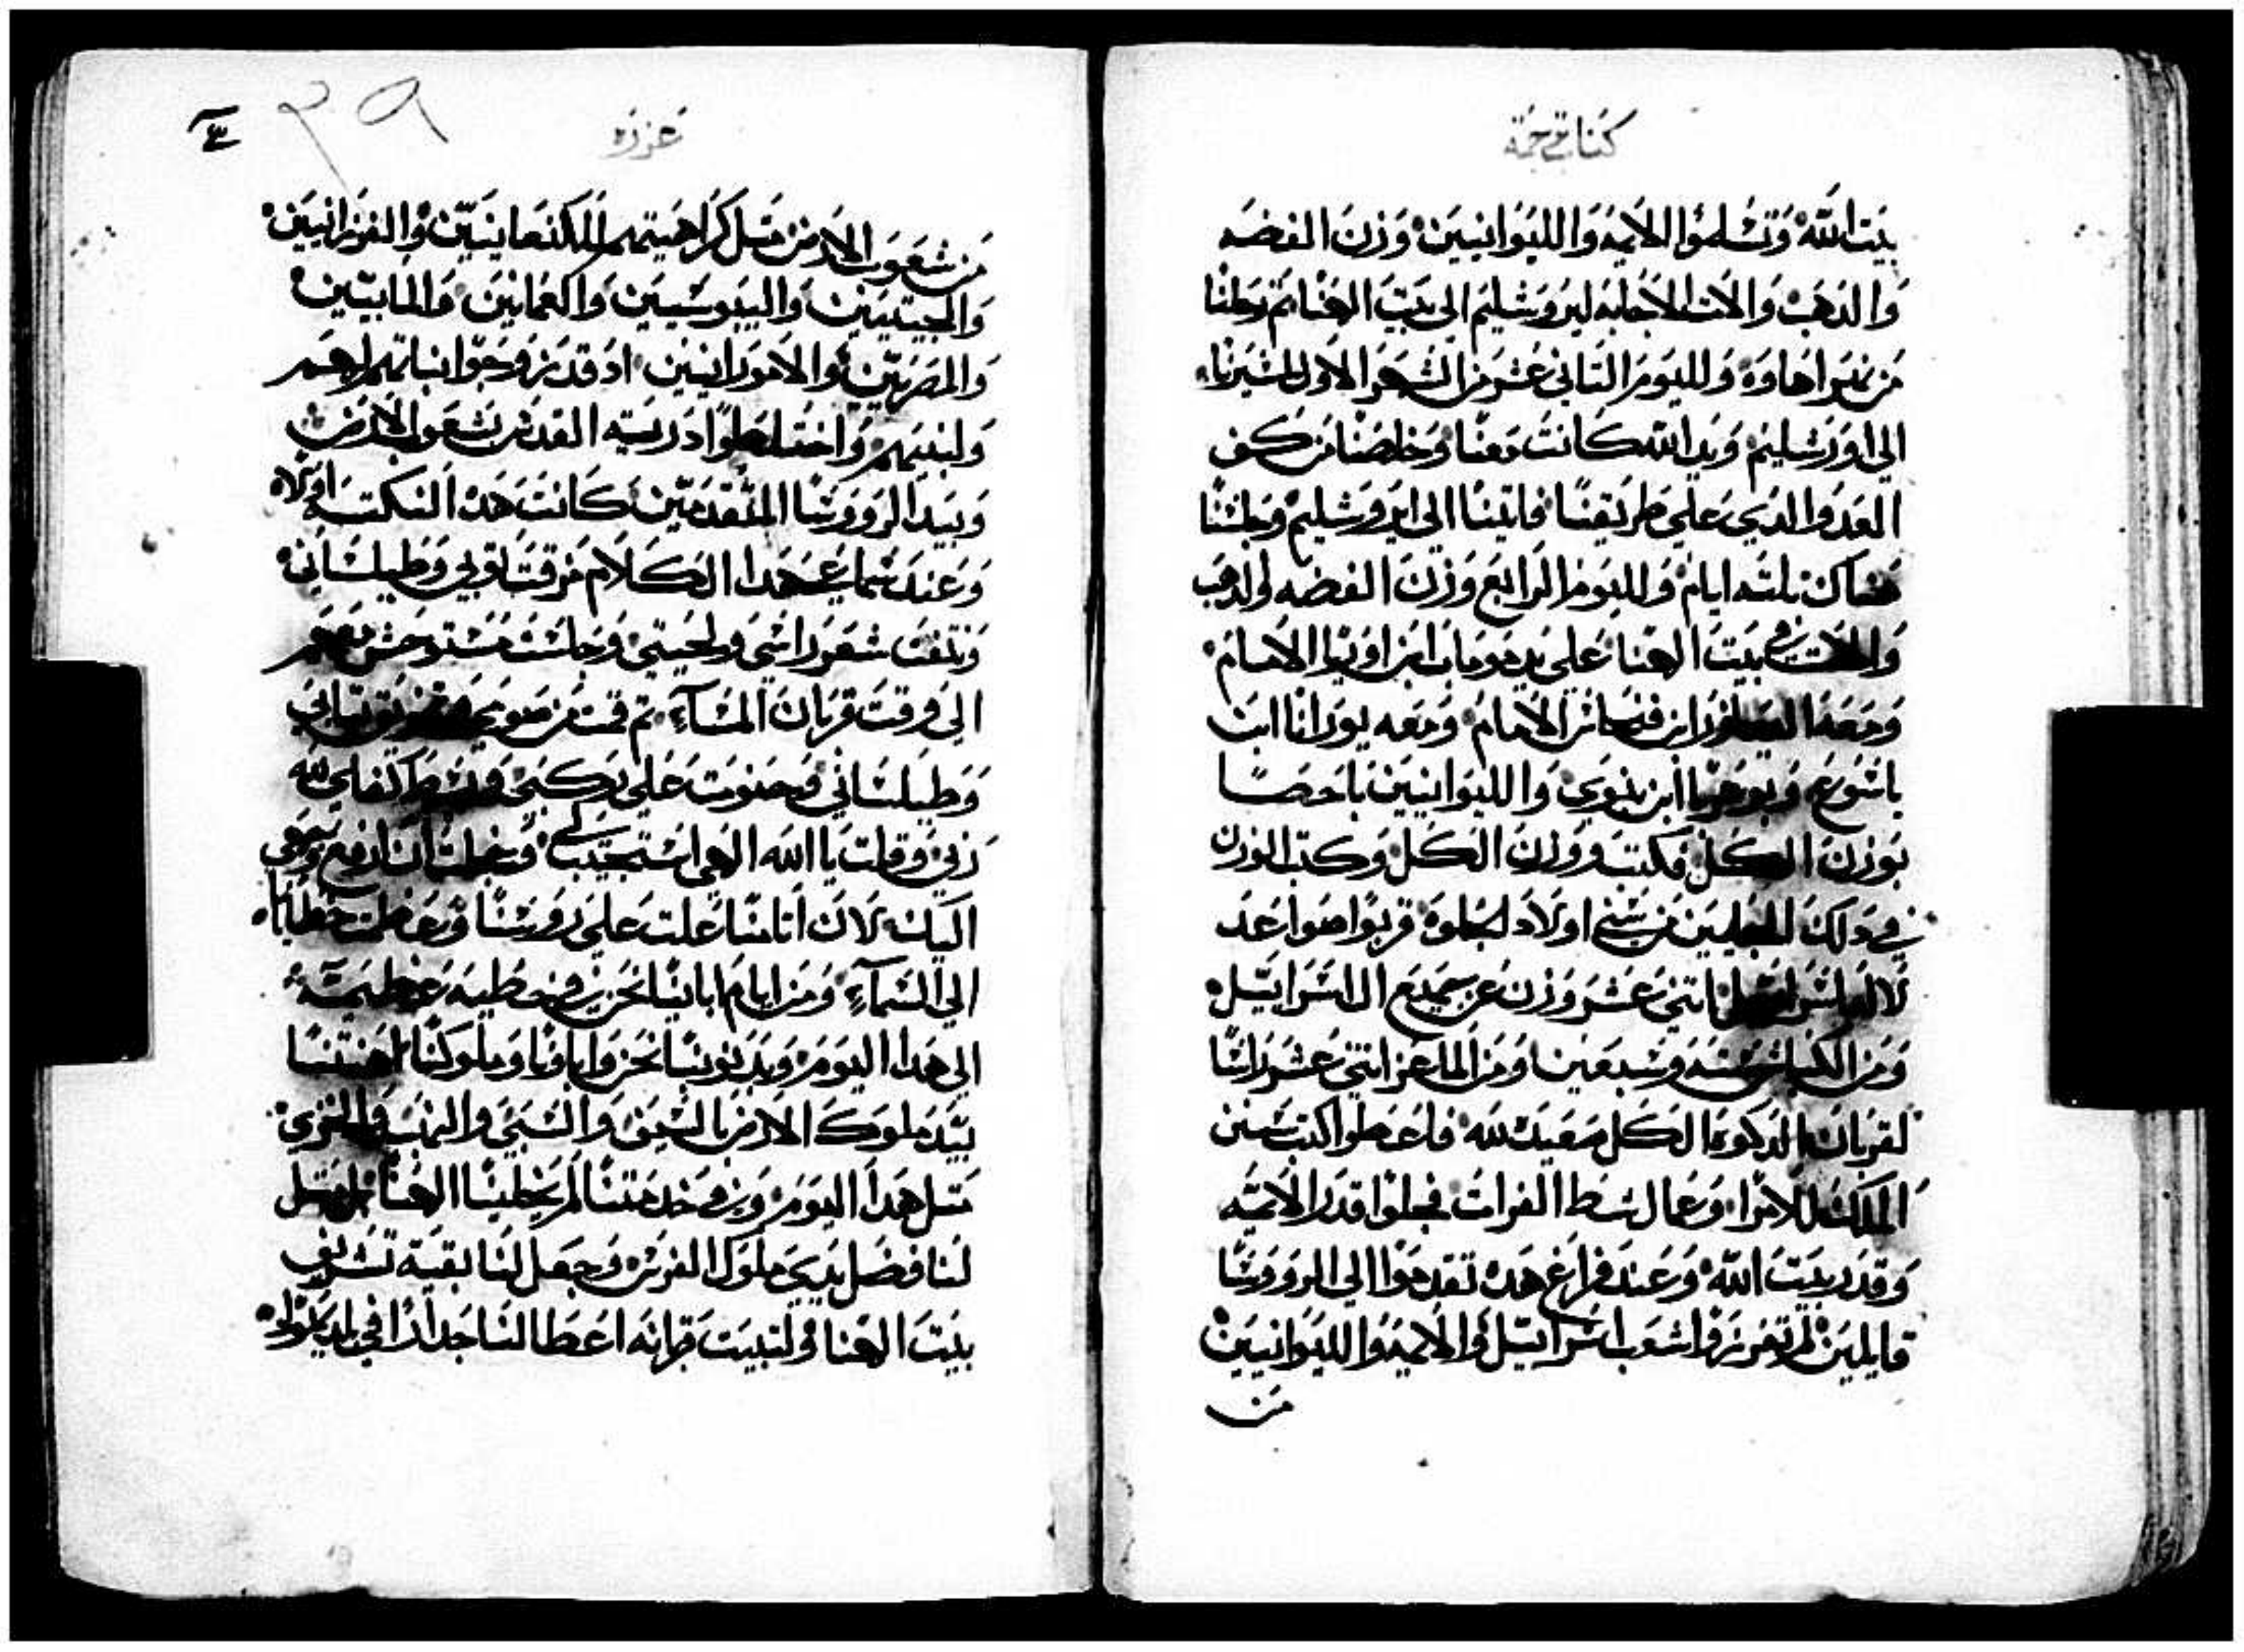 كتاب ترجمة
بيت الله وتسلموا الايمه والليوانيين وزن الفضه
والدهب والالات الاجابه ليروشليم الى بيت الهنا تم رحلنا
من نهر اهاوه ولليوم التاني عشر من الشهر الاول لمسيرنا
الى اورشليم ويد الله كانت معنا وخلصنا من كف
العدو الدي على طريقنا فاتينا الى ايروشليم وجلسنا
هناك تلته ايام ولليوم الرابع وزن الفضه والدهب
والالات في بيت الهنا على يد موماب ابن اوريا الامام
ومعه العيازر ابن فنحاس الامام ومعه يورانا ابن
باشوع ويوحنا ابن بنوي والليوانيين باحصا
بوزن الكل فكتب ووزن الكل وكتب الوزن
في دلك الحين من سبي اولاد الجلوه قربوا صواعد
لاله اسراييل اتني عشر وزن عن جميع ال اسراييل
ومن الكباش سته وسبعين ومن الماعز اتني عشر راسا
لقربان الدكوه الكل صعيده لله فاعطوا كتب سنن
الملك للامرا وعمال شط الفرات فجلوا قدر الايمه
وقدر بيت الله وعند فراغ هده تقدموا الي الرووسا
قايلين لم تفرزوا شعب اسراييل والايمه والليوانيين
من
عزره
٣٩
من شعوب الارض متل كراهيتهم للكنعانيين والفرزانيين
والحيتيين واليبوسيين والعمانين والمابيين
والمصريين والامورانيين اد قد تزوجوا بناتهم لهم
ولبنيهم واختلطوا دريته القدس بشعوب الارض
وبيد الرووسا المتقدمين كانت هده النكته اولاه
وعند سماعي هدا الكلام مزقت توبي وطيلساني
ونتفت شعر راسي ولحيتي وجلست مستوحش معهم
الى وقت قربان المساء تم قمت من صومي تيابي
وطيلساني وحنوت على ركبتي وبسط كفاي لله
ربي وقلت يا الله الهي استجيب وخجلت ان ارفع وجهي
اليك لان اتامنا علت على رووسنا وعظمت خطايانا
الى السماء ومن ايام اباينا نحن في خطيه عظيمه
الى هدا اليوم وبدنوبنا نحن واباونا وملوكنا اهنتنا
بيد ملوك الارض بالسيف والسبي والنهب والخزي
متل هدا اليوم وفي خدمتنا لم يخلينا الهنا بل
لنا فضل بيدي ملوك الفرس وجعل لنا بقية تشريف
بيت الهنا ولتبيت قرانه اعطا لنا جدارا في بلد